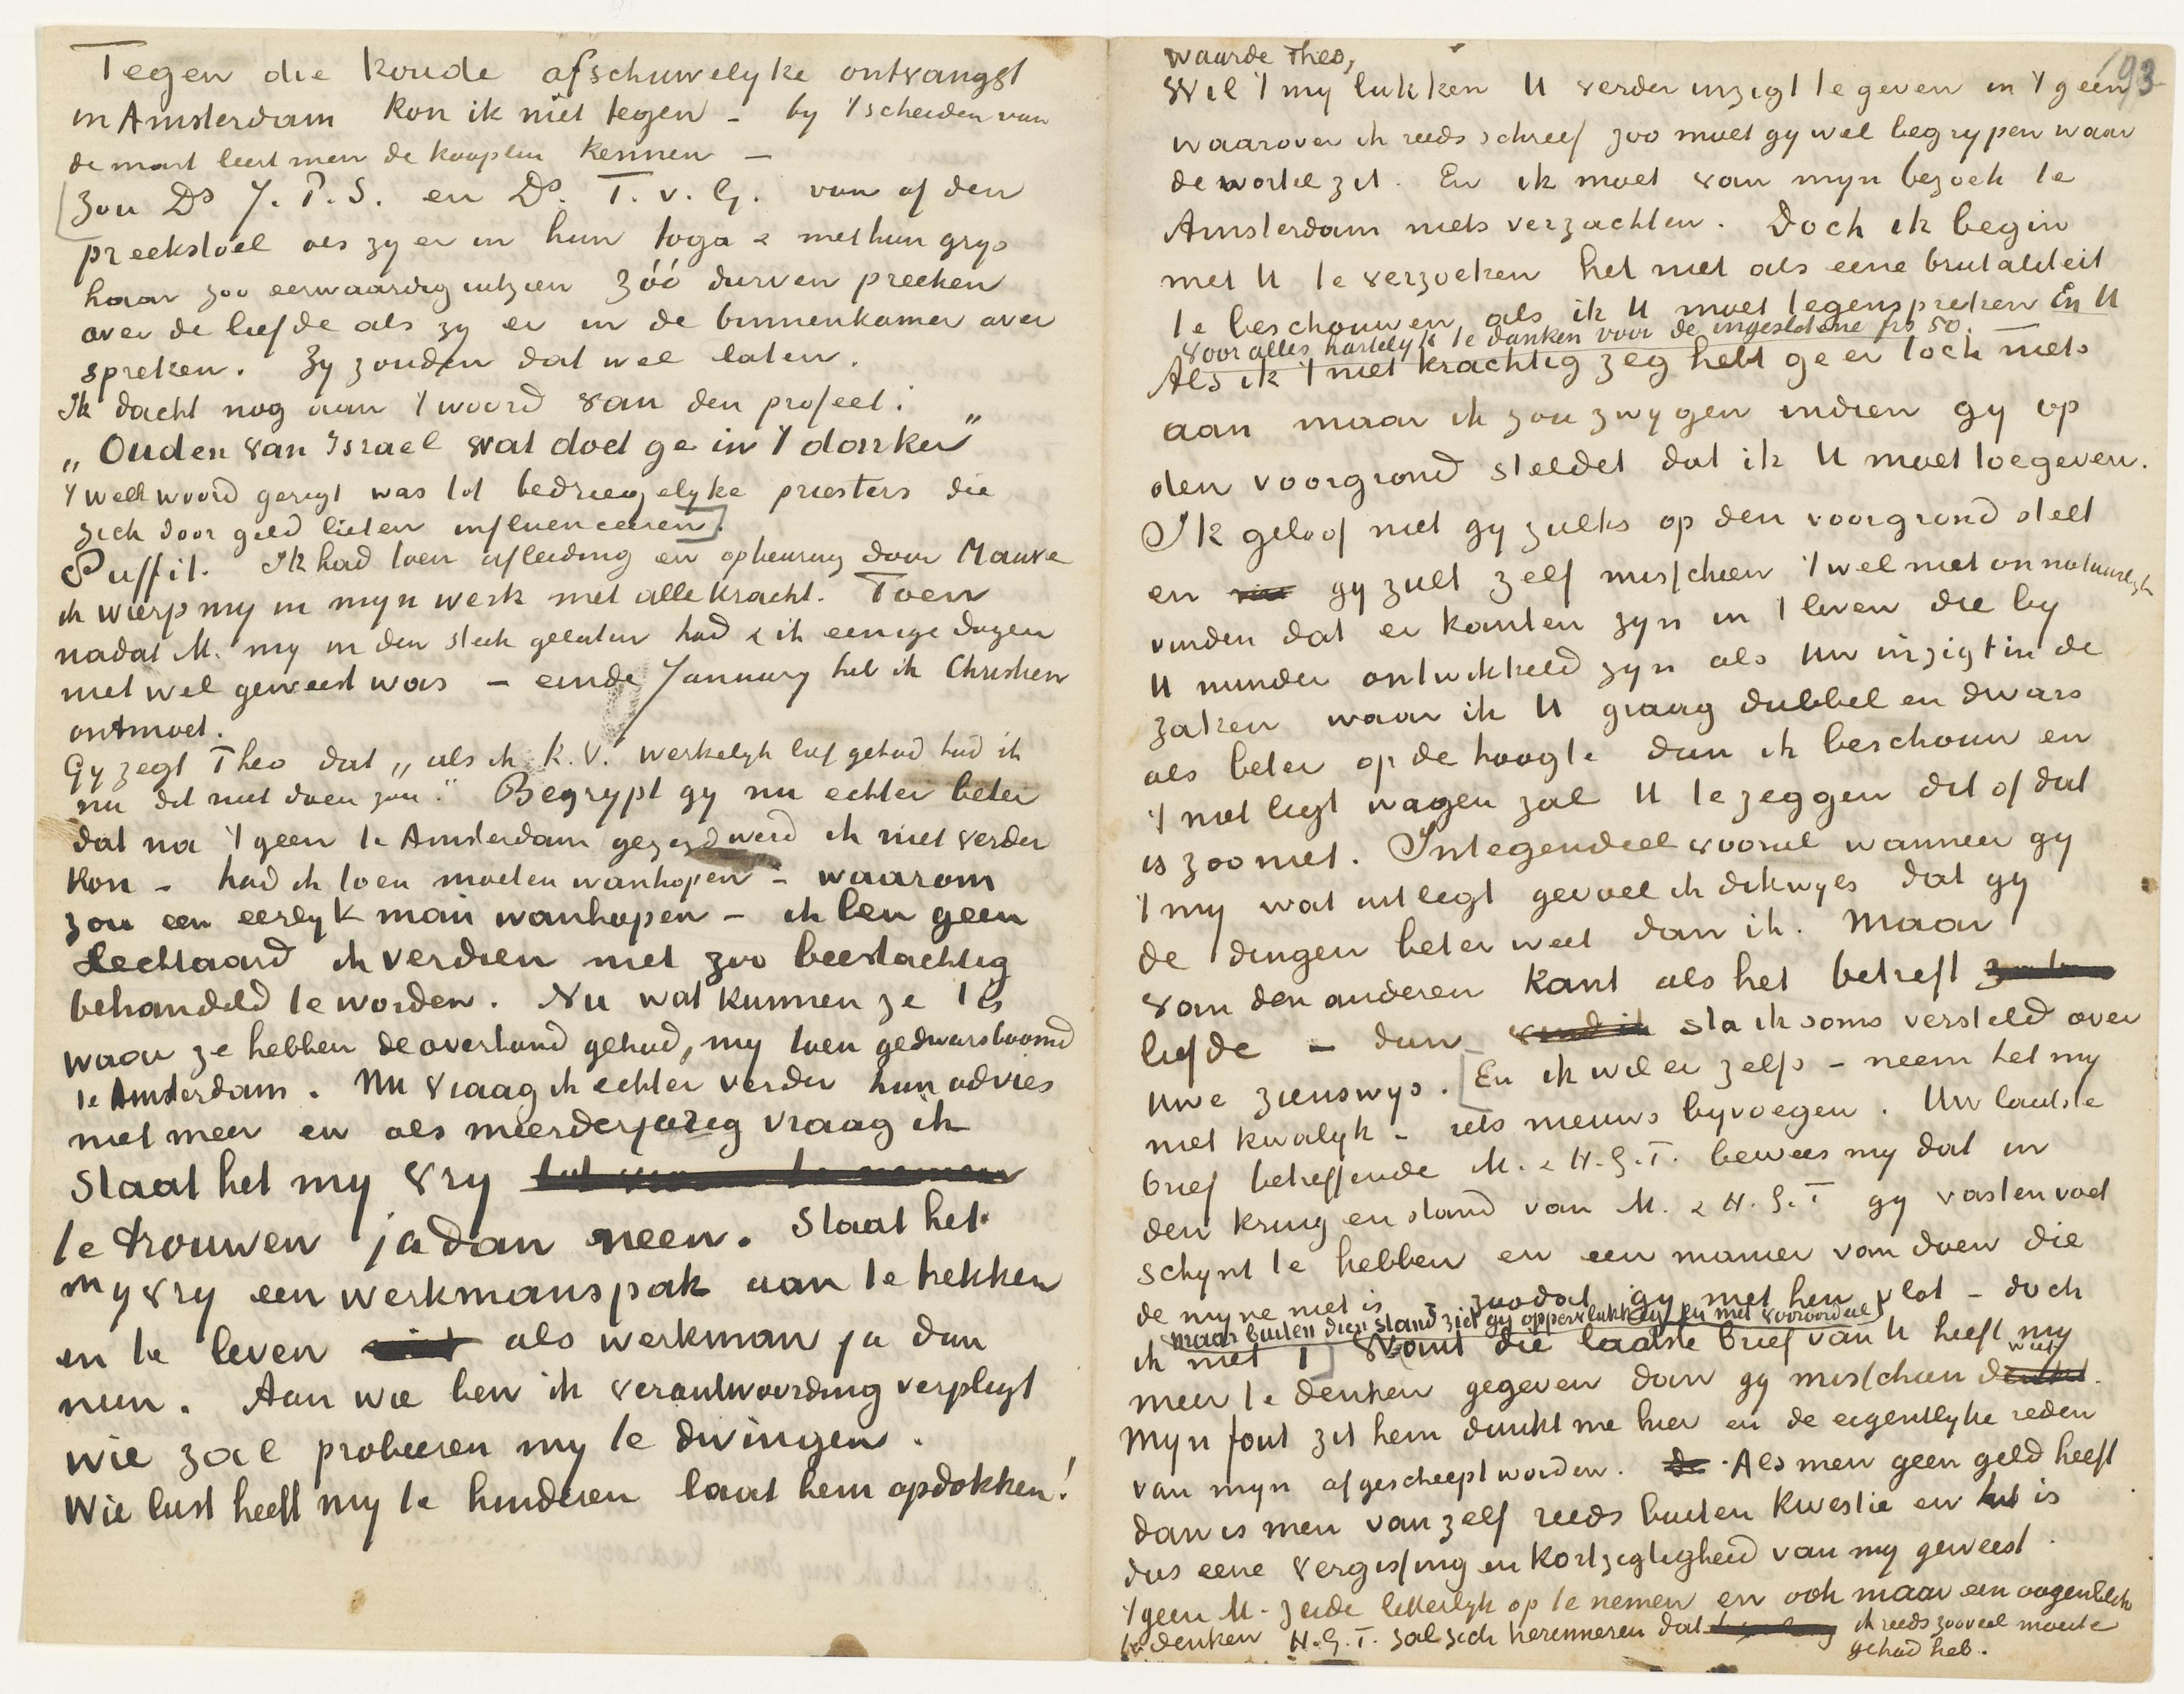 Tegen die koude afschuwelyke ontvangst
in Amsterdam kon ik niet tegen – by 't scheiden van
de mart leert men de kooplui kennen –
[Zou Ds J. P. S. en Ds. T. v. G. van af den
preekstoel als zy er in hun toga & met hun grys
haar zoo eerwaardig uitzien zóó durven preeken
over de liefde als zy er in de binnenkamer over
spreken. Zy zouden dat wel laten.
Ik dacht nog aan 't woord van den profeet:
„Ouden van Israel wat doet ge in 't donker”
't welk woord gerigt was tot bedriegelyke priesters die
zich door geld lieten influenceeren].
Suffit. Ik had toen afleiding en opbeuring door Mauve
ik wierp my in myn werk met alle kracht. Toen
nadat M. my in den steek gelaten had & ik eenige dagen
niet wel geweest was – einde January heb ik Christien
ontmoet.
Gy zegt Theo dat „als ik K.V. werkelyk lief gehad had ik
nu dit niet doen zou.” Begrypt gy nu echter beter
dat na 't geen te Amsterdam gezegd werd ik niet verder
kon – had ik toen moeten wanhopen – waarom
zou een eerlyk man wanhopen – ik ben geen
slechtaard ik verdien niet zoo beestachtig
behandeld te worden. Nu wat kunnen ze 't is
waar ze hebben de overhand gehad, my toen gedwarsboomd
te Amsterdam. Nu vraag ik echter verder hun advies
niet meer en als meerderjarig vraag ik
staat het my vry
te trouwen ja dan neen. Staat het
my vry een werkmanspak aan te trekken
en te leven als werkman ja dan
neen. Aan wie ben ik verantwoording verpligt
wie zal probeeren my te dwingen.
Wie lust heeft my te hinderen laat hem opdokken!
93
Waarde Theo,
Wil 't my lukken U verder inzigt te geven in 't geen
waarover ik reeds schreef zoo moet gy wel begrypen waar
de wortel zit. En ik moet van myn bezoek te
Amsterdam niets verzachten. Doch ik begin
met U te verzoeken het niet als eene brutaliteit
te beschouwen als ik U moet tegenspreken En U
voor alles hartelyk te danken voor de ingeslotene frs 50.
Als ik 't niet krachtig zeg hebt ge er toch niets
aan maar ik zou zwygen indien gy op
den voorgrond steldet dat ik U moet toegeven.
Ik geloof niet gy zulks op den voorgrond stelt
en gy zult zelf misschien 't wel niet onnatuurlyk
vinden dat er kanten zyn in 't leven die by
U minder ontwikkeld zyn als Uw inzigt in de
zaken waar ik U graag dubbel en dwars
als beter op de hoogte dan ik beschouw en
't niet ligt wagen zal U te zeggen dit of dat
is zoo niet. Integendeel vooral wanneer gy
't my wat uitlegt gevoel ik dikwyls dat gy
de dingen beter weet dan ik. Maar
van den anderen kant als het betreft
liefde – dan sta ik soms versteld over
Uwe zienswys. [En ik wil er zelfs – neem het my
niet kwalyk – iets nieuws byvoegen. Uw laatste
brief betreffende M. & H.G.T. bewees my dat in
den kring en stand van M. & H.G.T gy vasten voet
schynt te hebben en een manier van doen die
de myne niet is – zoodat gy met hen vlot – doch
maar buiten dien stand ziet gy oppervlakkig en met vooroordeel
ik niet!] Want die laatste brief van U heeft my
meer te denken gegeven dan gy misschien weet.
Myn fout zit hem dunkt me hier en de eigentlyke reden
van myn afgescheept worden. Als men geen geld heeft
dan is men vanzelf reeds buiten kwestie en het is
dus eene vergissing en kortzigtigheid van my geweest
't geen M. zeide letterlyk op te nemen en ook maar een oogenblik
te denken H.G.T. zal zich herinneren dat ik reeds zooveel moeite
gehad heb.